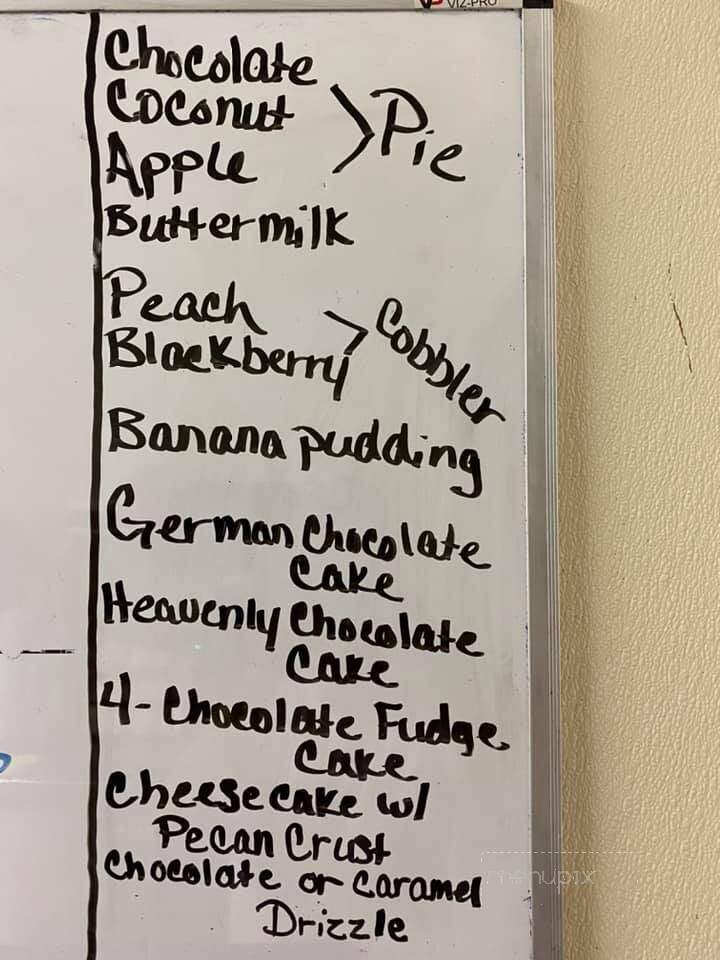 VIZ-PRO
Chocolate
Coconut > Pie
Apple
Buttermilk
Peach
Blackberry > Cobbler
Banana pudding
German Chocolate
Cake
Heavenly Chocolate
Cake
4- Chocolate Fudge
Cake
Cheesecake w/
Pecan Crust
Chocolate or Caramel
Drizzle
menupix